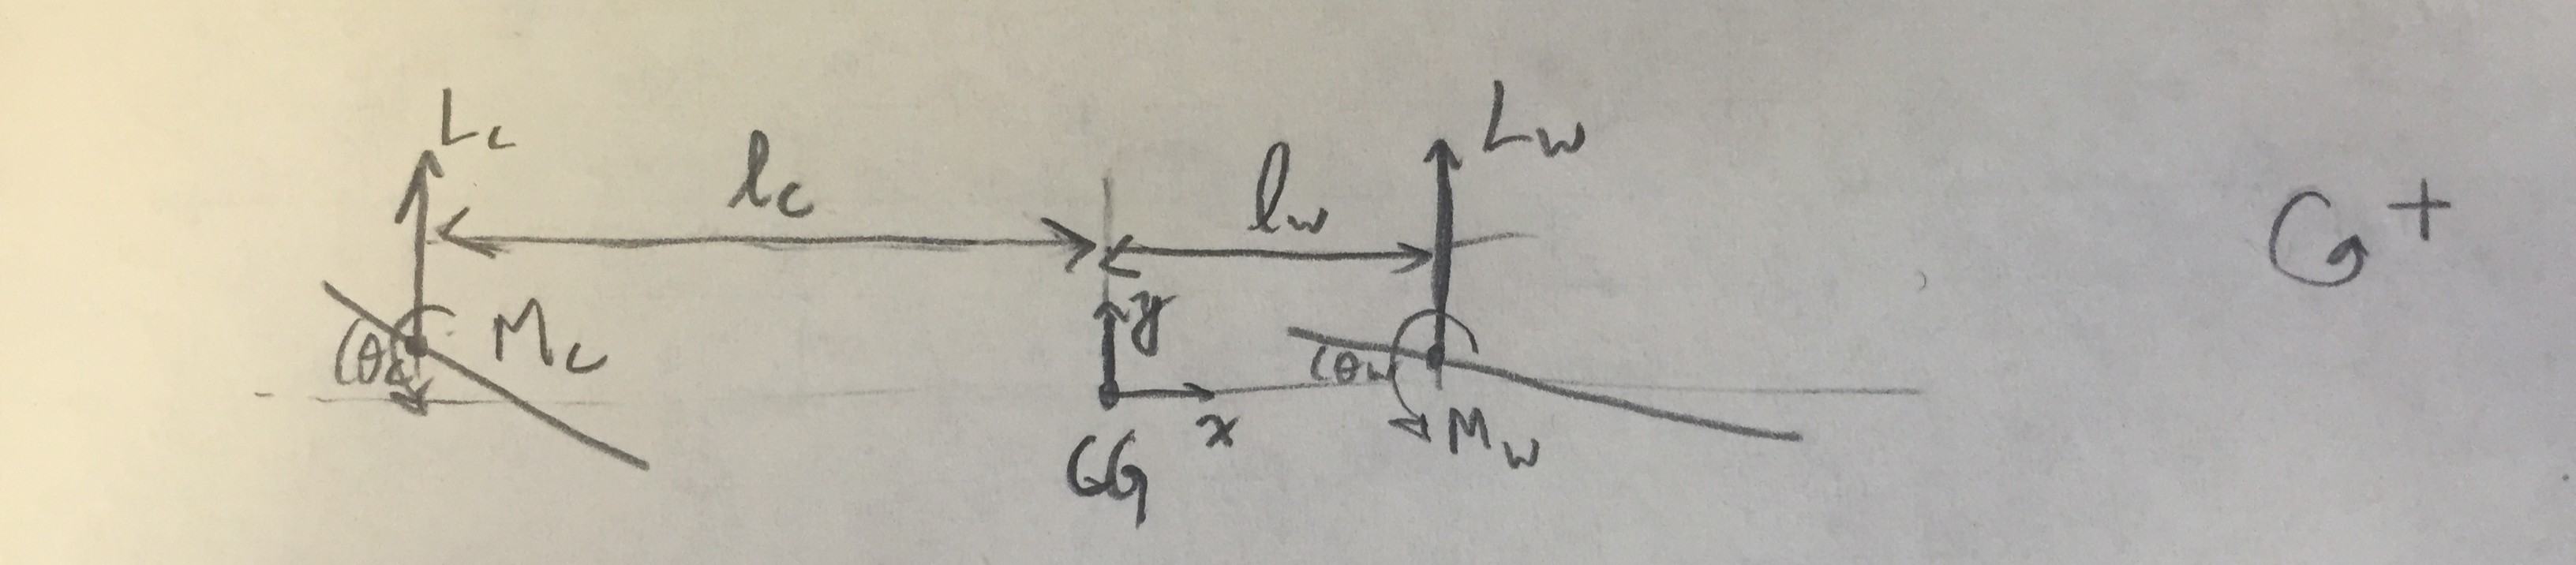 Lc
lc
lw
Lw
+
Mc
θc
y
x
CG
θw
Mw